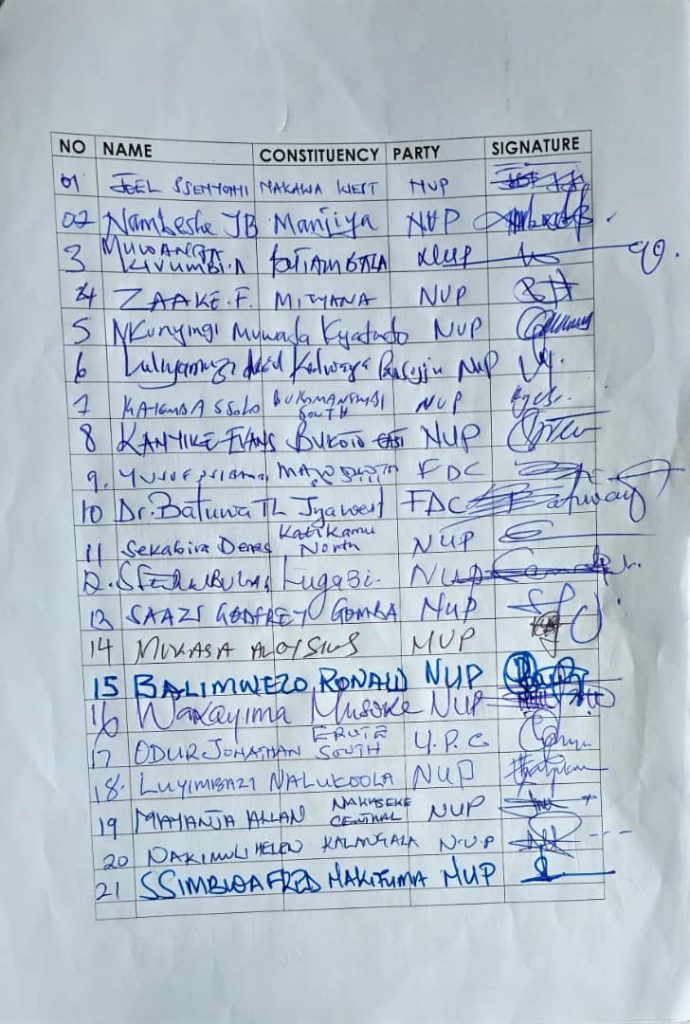 NO NAME CONSTITUENCY PARTY SIGNATURE
01 JOEL SSENYONYI NAKAWA WEST NUP
02 Nambeshe JB Manjiya NUP
3 MUWANGA KIVUMBI.A BUTAMBALA NUP
4 ZAAKE.F. MITYANA NUP
5 NKunyingi Muwada Kyadondo NUP
6 Kalwanga NUP
7 KAYEMBA SSOLO BUKOMANSIMBI SOUTH NUP
8 KANYIKE EVANS BUKOTO EAST NUP
9. YUSUF NSIBAMBI FDC
10 Dr. Batuwa TL Jinja west FDC
11 Sekabira Denes Katikamu North NUP
12. Lugazi. NUP
13 SAAZI GODFREY GOMBA NUP
14 MUKASA ALOYSIUS NUP
15 BALIMWEZO RONALD NUP
16 Wakayima Musoke NUP
17 ODUR JONATHAN ERUTE SOUTH U.P.C
18. LUYIMBAZI NALUKOOLA NUP
19 MAYANJA ALLAN NAKASEKE CENTRAL NUP
20 NAKIMULI HELEN KALANGALA N.U.P
21 SSIMBWA FRED NAKIFUMA NUP